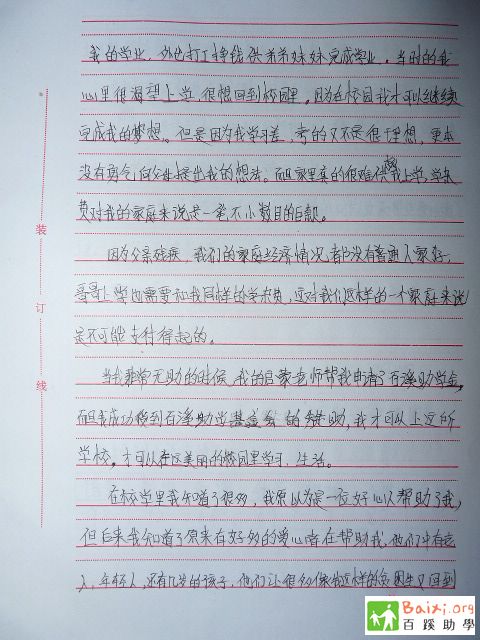 我的学业，外出打工挣钱供弟弟妹妹完成学业。当时的我
心里很渴望上学，很想回到校园里。因为在校园我才可以继续
完成我的梦想。但是因为我学习差，考的又不是很理想，更本
没有勇气向父母提出我的想法。而且家里真的很难供我上学，学杂
费对我的家庭来说是一笔不小数目的巨款。
因为父亲残疾，我们的家庭经济情况都没有普通人家好，
哥哥上学也需要和我同样的学杂费，这对我们这样的一个家庭来说
是不可能支付得起的。
当我非常无助的时候，我的老师帮我申请了百溪助学金，
而且我成功得到百溪助学基金会的赞助，我才可以上这所
学校，才可以在这美丽的校园里学习、生活。
在校学里我知道了很多，我原以为是一位好心人帮助了我，
但后来我知道了原来有好多的爱心者在帮助我，他们中有老
人，年轻人，还有几岁的孩子，他们让很多像我这样的贫困生又回到
装
订
线
Baixi.org
百蹊助學